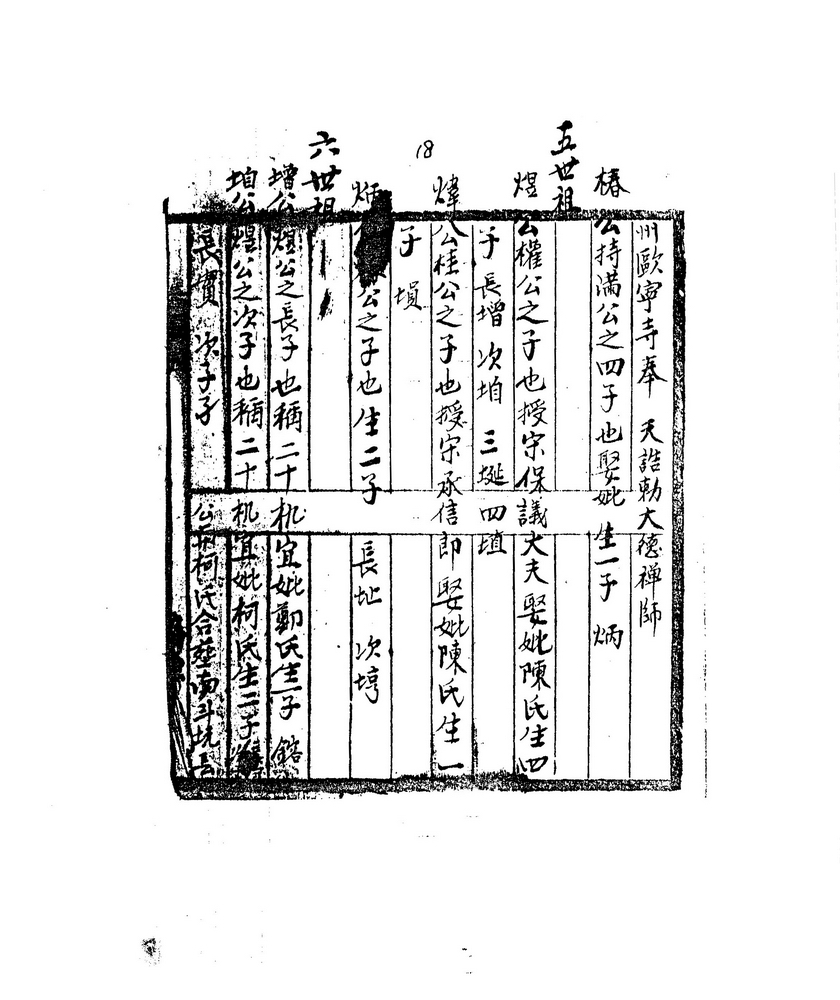 州歐寧寺奉 天誥勅大德禪師
椿公持滿公之四子也娶妣 生一子 炳
五世祖
煜公權公之子也授宋保議大夫娶妣陳氏生四
子 長增 次垍 三埏 四埴
18
煒公桂公之子也授宋承信郎娶妣陳氏生一
子 塤
炳公之子也生二子 長址 次埻
六世祖
增公煜公之長子也稱二十机宜妣鄭氏生一子 錧
垍公煜公之次子也稱二十机宜妣柯氏生二子
長 次子 公與柯氏合葬南斗坑